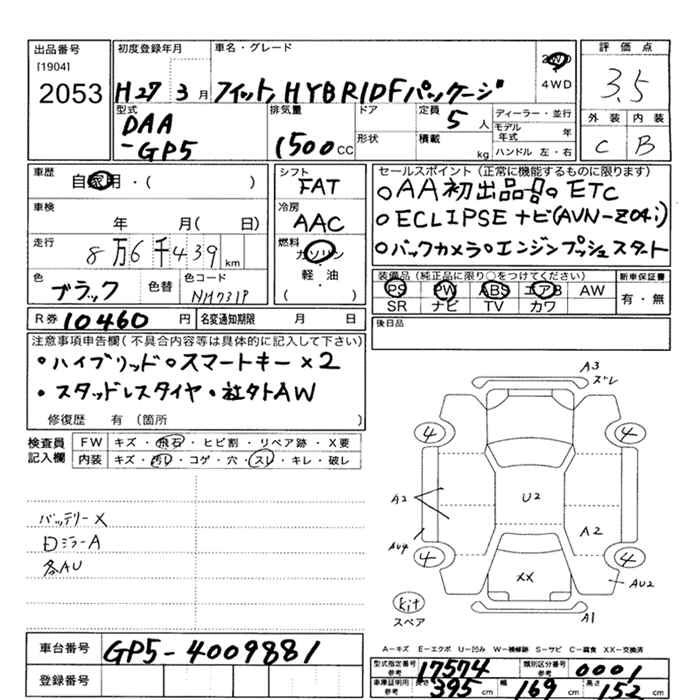 出品番号
[1904]
2053
初度登録年月
H27 3月
車名・グレード
フィット HYBRID Fパッケージ
2WD
4WD
評価点
3.5
外装 内装
C B
型式
DAA
-GP5
排気量
1500cc
ドア
形状
定員
5人
積載
kg
ディーラー・並行
モデル年式 年
ハンドル 左・右
車歴
自家用・( )
車検
年 月( 日)
走行
8万6千439km
色
ブラック
色替
色コード
NH731P
シフト
FAT
冷房
AAC
燃料
ガソリン
軽・油
( )
セールスポイント (正常に機能するものに限ります)
○AA初出品号○ETC
○ECLIPSEナビ(AVN-Z04i)
○バックカメラ○エンジンプッシュスタート
装備品 (純正品に限り○をつけてください)
PS PW ABS エアB AW
SR ナビ TV カワ
新車保証書
有・無
R券 10460円
名変通知期限 月 日
後日品
注意事項申告欄(不具合内容等は具体的に記入して下さい)
・ハイブリッド○スマートキー×2
・スタッドレスタイヤ・社外AW
修復歴 有 (箇所 )
検査員
記入欄
FW キズ・飛石・ヒビ割・リペア跡・X要
内装 キズ・汚レ・コゲ・穴・スレ・キレ・破レ
バッテリーX
日ミラーA
各AU
A3
ズレ
4
4
A2
U2
A2
AU4
4
4
XX
AU2
kit
スペア
A1
A—キズ E—エクボ U—凹み W—補修跡 S—サビ C—腐食 XX—交換済
車台番号
GP5-4009881
登録番号
型式指定番号
参考
17574
類別区分番号
参考
0001
車庫証明用
参考
長さ 395cm
幅 169cm
高さ 152cm